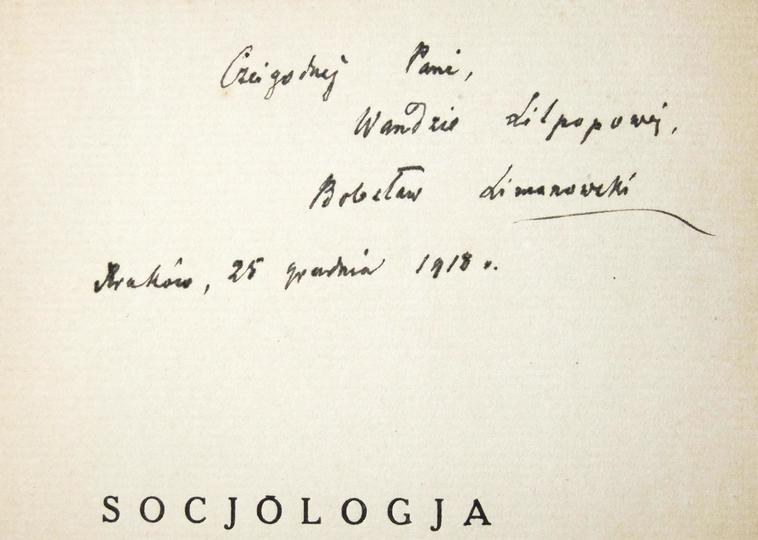 Czcigodnej Pani,
Wandzie Lilpopowej,
Bolesław Limanowski
Kraków, 25 grudnia 1918 r.
SOCJOLOGJA